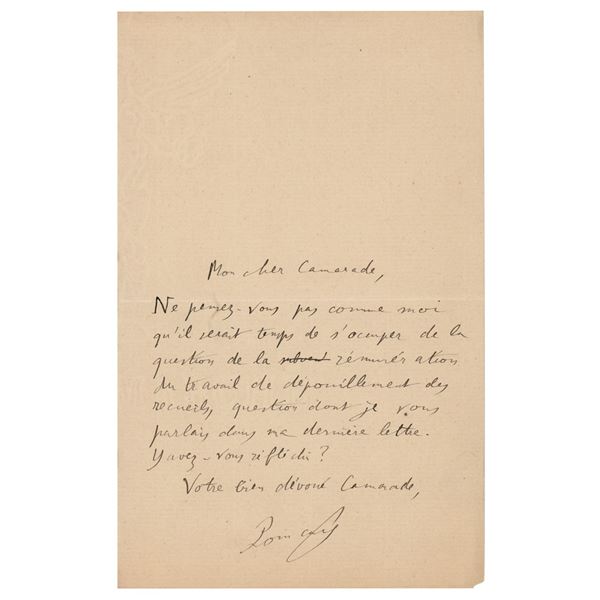 Mon cher Camarade,
Ne pensez-vous pas comme moi
qu'il serait temps de s'occuper de la
question de la rémunération
du travail de dépouillement des
recueils, question dont je vous
parlais dans ma dernière lettre.
Y avez-vous réfléchi?
Votre bien dévoué Camarade,
Poincaré